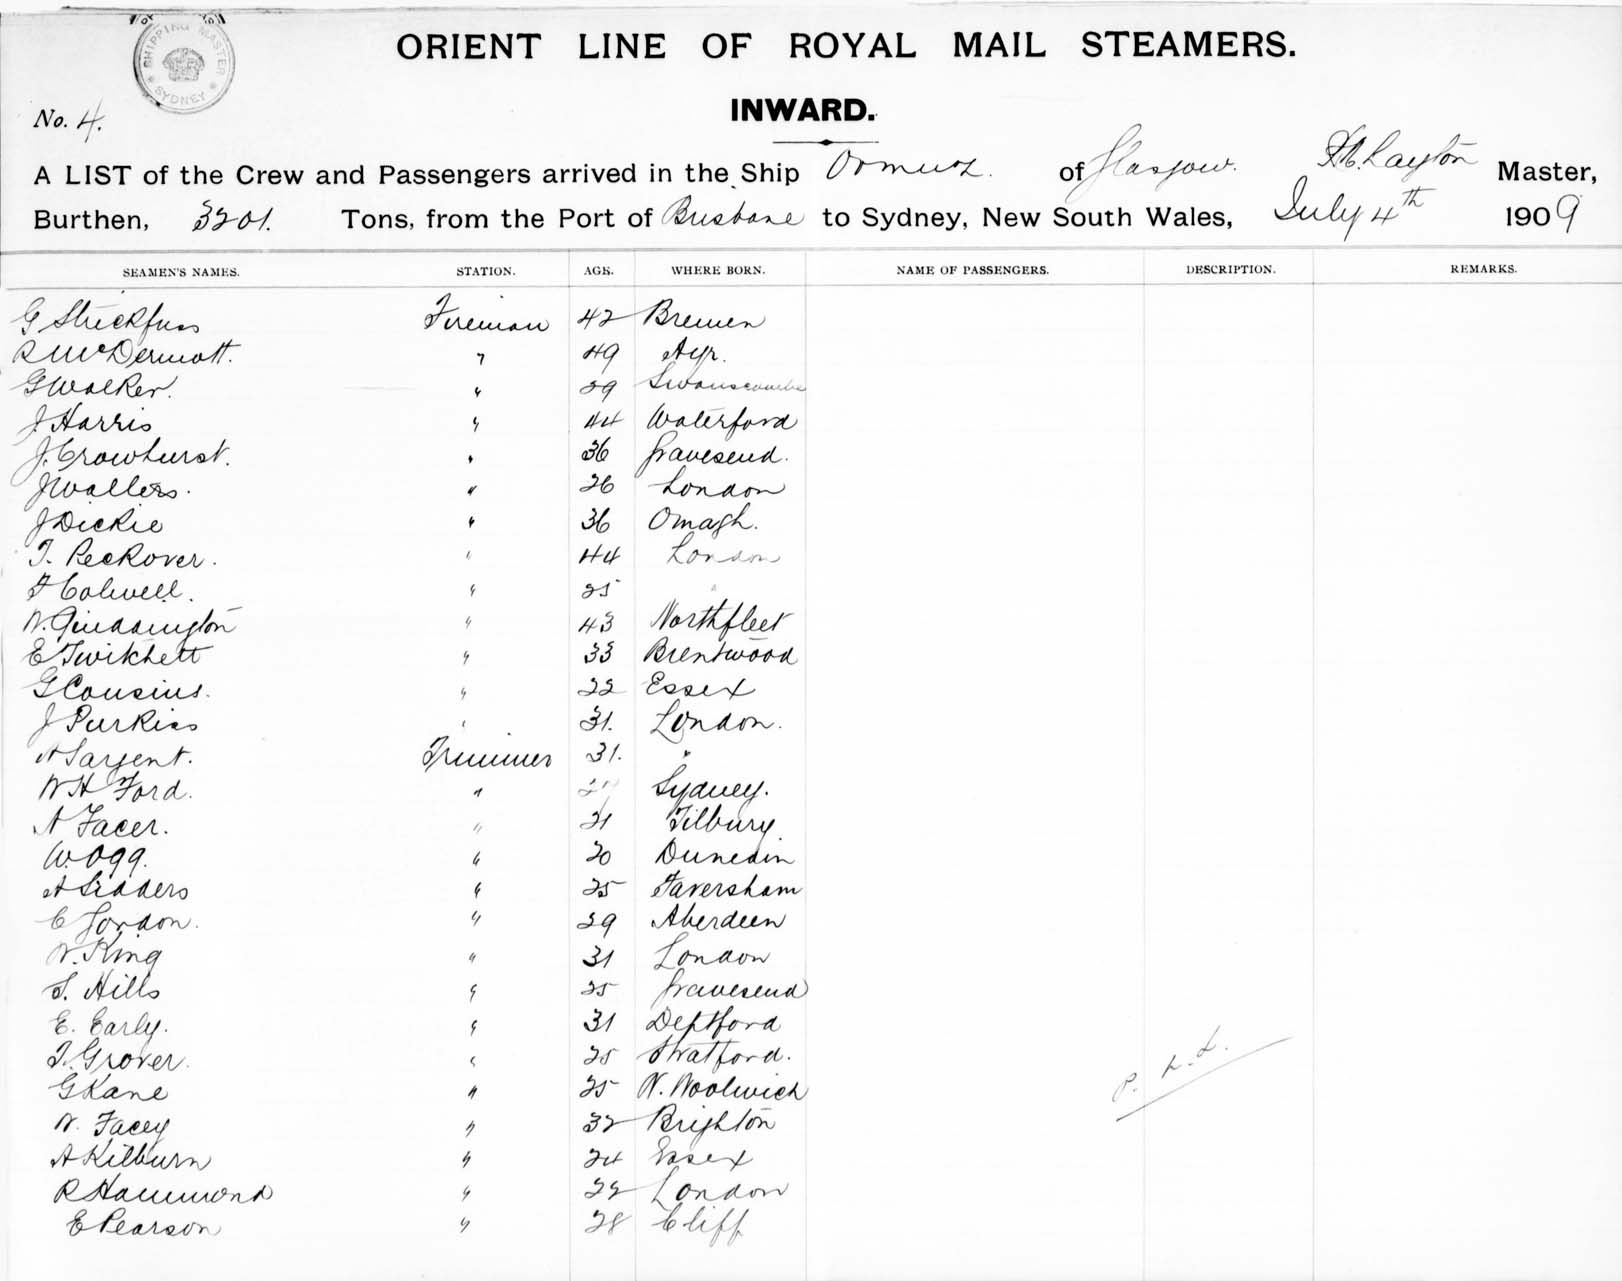 SHIPPING MASTER
SYDNEY
ORIENT LINE OF ROYAL MAIL STEAMERS.
INWARD.
No. 4.
A LIST of the Crew and Passengers arrived in the Ship Ormuz. of Glasgow. Layton Master,
Burthen, 3201. Tons, from the Port of Brisbane to Sydney, New South Wales, July 4th 1909
SEAMEN'S NAMES. STATION. AGE. WHERE BORN. NAME OF PASSENGERS. DESCRIPTION. REMARKS.
G Strickfuss Fireman 42 Bremen
R McDermott. " 49 Ayr.
G Walker. " 29 Swanscombe
J Harris " 44 Waterford
J. Crowhurst. " 36 Gravesend.
J Wallers. " 26 London
J Dickie " 36 Omagh.
T. Peckover. " 44 London
F Colwell. " 25 "
W. " 43 Northfleet
E Twitchett " 33 Brentwood
G Cousins. " 22 Essex
J Purkiss " 31. London.
A Sargent. Trimmer 31. "
W H Ford. " Sydney.
A Facer. " 21 Tilbury.
W. Ogg. " 20 Dunedin
A Sidders " 25 Faversham
C Gordon. " 29 Aberdeen
W. King " 31 London
S. Hills " 25 Gravesend
E. Early. " 31 Deptford
T. Grover. " 25 Stratford.
G Kane " 25 N. Woolwich
W. Facey " 32 Brighton
A Kilburn " 24 Essex
R Hammond " 22 London
E Pearson " 28 Cliff